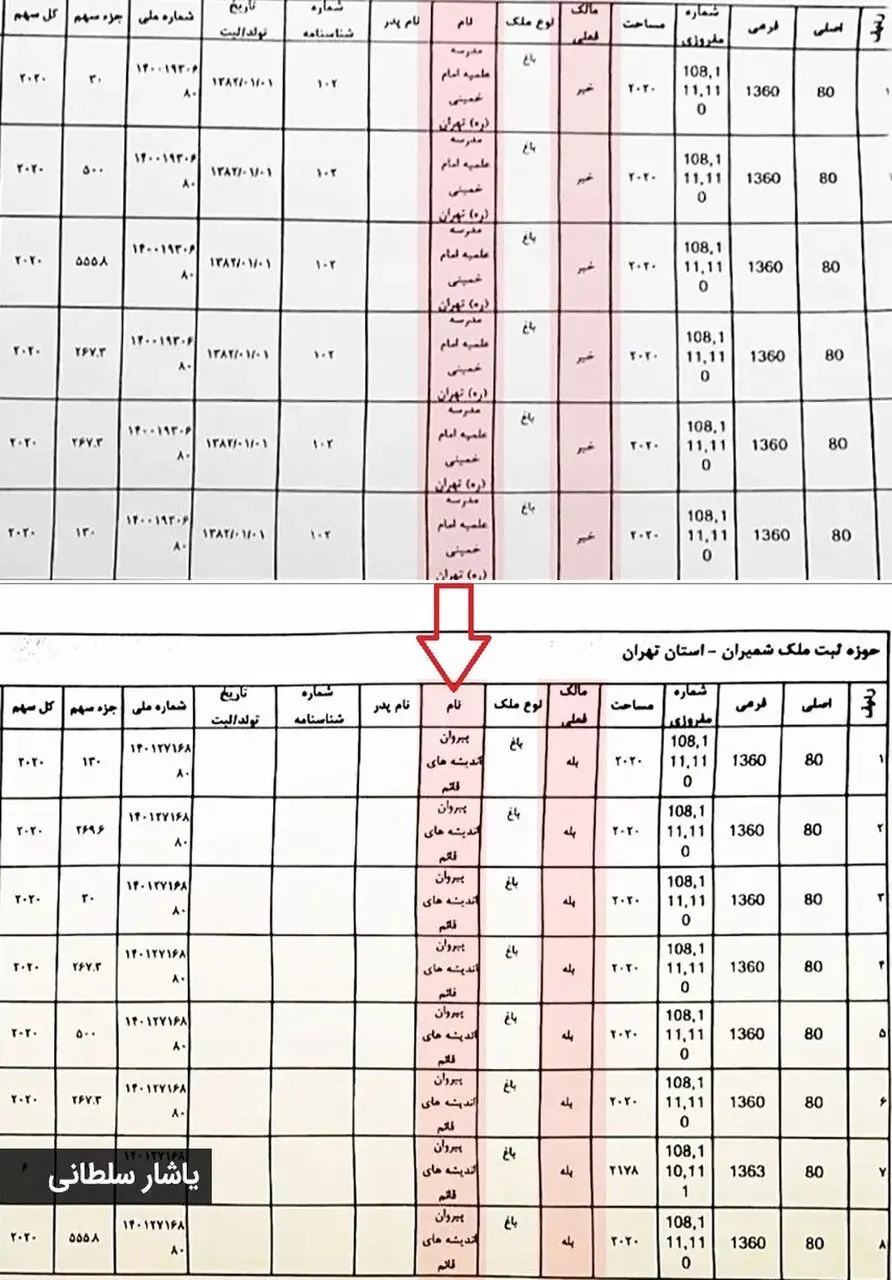 ردیف اصلی فرعی شماره مفروزی مساحت مالک فعلی نوع ملک نام نام پدر شماره شناسنامه تاریخ تولد/ثبت شماره ملی جزء سهم کل سهم
80 1360 108,111,110 ۲۰۲۰ خیر باغ مدرسه علمیه امام خمینی (ره) تهران ۱۰۲ ۱۳۸۲/۰۱/۰۱ ۱۴۰۰۱۹۳۰۶۸۰ ۳۰ ۲۰۲۰
80 1360 108,111,110 ۲۰۲۰ خیر باغ مدرسه علمیه امام خمینی (ره) تهران ۱۰۲ ۱۳۸۲/۰۱/۰۱ ۱۴۰۰۱۹۳۰۶۸۰ ۵۰۰ ۲۰۲۰
80 1360 108,111,110 ۲۰۲۰ خیر باغ مدرسه علمیه امام خمینی (ره) تهران ۱۰۲ ۱۳۸۲/۰۱/۰۱ ۱۴۰۰۱۹۳۰۶۸۰ ۵۵۵.۸ ۲۰۲۰
80 1360 108,111,110 ۲۰۲۰ خیر باغ مدرسه علمیه امام خمینی (ره) تهران ۱۰۲ ۱۳۸۲/۰۱/۰۱ ۱۴۰۰۱۹۳۰۶۸۰ ۲۶۷.۳ ۲۰۲۰
80 1360 108,111,110 ۲۰۲۰ خیر باغ مدرسه علمیه امام خمینی (ره) تهران ۱۰۲ ۱۳۸۲/۰۱/۰۱ ۱۴۰۰۱۹۳۰۶۸۰ ۲۶۷.۳ ۲۰۲۰
80 1360 108,111,110 ۲۰۲۰ خیر باغ مدرسه علمیه امام خمینی (ره) تهران ۱۰۲ ۱۳۸۲/۰۱/۰۱ ۱۴۰۰۱۹۳۰۶۸۰ ۱۳۰ ۲۰۲۰
حوزه ثبت ملک شمیران - استان تهران
ردیف اصلی فرعی شماره مفروزی مساحت مالک فعلی نوع ملک نام نام پدر شماره شناسنامه تاریخ تولد/ثبت شماره ملی جزء سهم کل سهم
۱ 80 1360 108,111,110 ۲۰۲۰ بله باغ پیروان اندیشه های قائم ۱۴۰۱۲۷۱۶۸۸۰ ۱۳۰ ۲۰۲۰
۲ 80 1360 108,111,110 ۲۰۲۰ بله باغ پیروان اندیشه های قائم ۱۴۰۱۲۷۱۶۸۸۰ ۲۶۹.۶ ۲۰۲۰
۳ 80 1360 108,111,110 ۲۰۲۰ بله باغ پیروان اندیشه های قائم ۱۴۰۱۲۷۱۶۸۸۰ ۳۰ ۲۰۲۰
۴ 80 1360 108,111,110 ۲۰۲۰ بله باغ پیروان اندیشه های قائم ۱۴۰۱۲۷۱۶۸۸۰ ۲۶۷.۳ ۲۰۲۰
۵ 80 1360 108,111,110 ۲۰۲۰ بله باغ پیروان اندیشه های قائم ۱۴۰۱۲۷۱۶۸۸۰ ۵۰۰ ۲۰۲۰
۶ 80 1360 108,111,110 ۲۰۲۰ بله باغ پیروان اندیشه های قائم ۱۴۰۱۲۷۱۶۸۸۰ ۲۶۷.۳ ۲۰۲۰
۷ 80 1363 108,110,111 ۲۱۷۸ بله باغ پیروان اندیشه های قائم
یاشار سلطانی
۸ 80 1360 108,111,110 ۲۰۲۰ بله باغ پیروان اندیشه های قائم ۱۴۰۱۲۷۱۶۸۸۰ ۵۵۵.۸ ۲۰۲۰